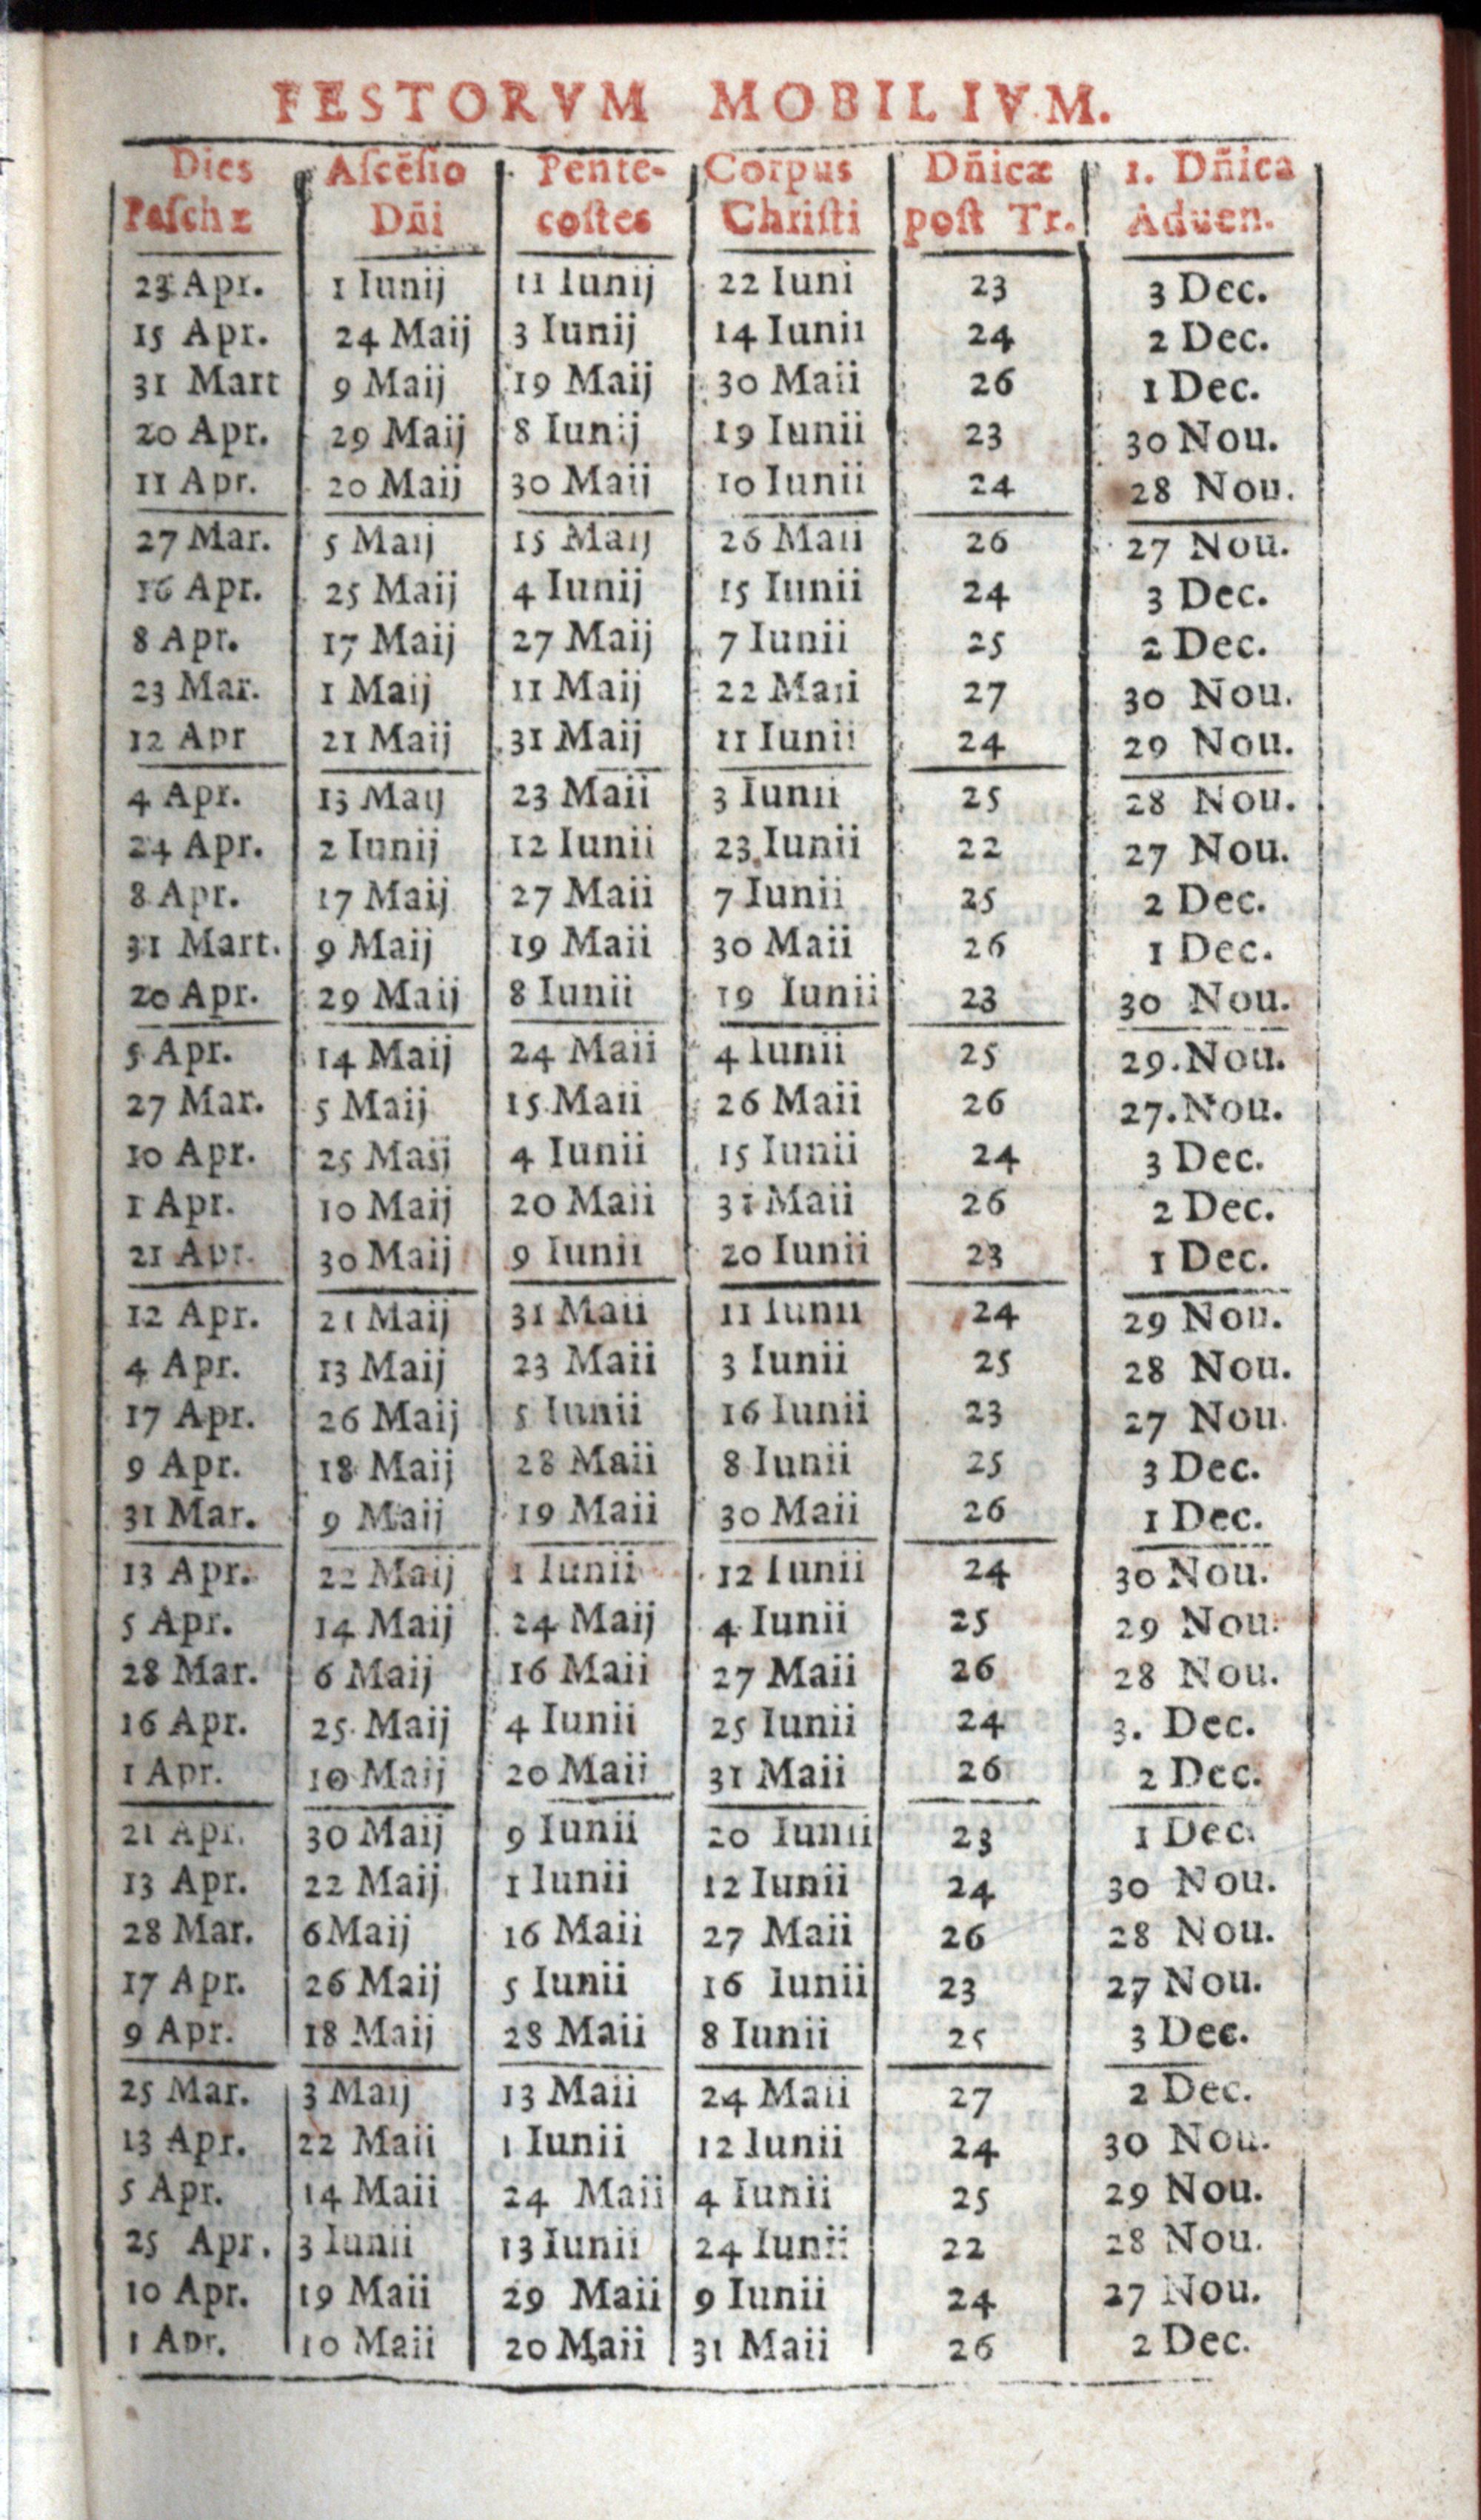 FESTORVM MOBILIVM.
Dies Aſcẽſio Pente- Corpus Dñicæ 1. Dñica
Paſchæ Dñi coſtes Chriſti poſt Tr. Aduen.
23 Apr. 1 Iunij 11 Iunij 22 Iuni 23 3 Dec.
15 Apr. 24 Maij 3 Iunij 14 Iunii 24 2 Dec.
31 Mart 9 Maij 19 Maij 30 Maii 26 1 Dec.
20 Apr. 29 Maij 8 Iunij 19 Iunii 23 30 Nou.
11 Apr. 20 Maij 30 Maij 10 Iunii 24 28 Nou.
27 Mar. 5 Maij 15 Maij 26 Maii 26 27 Nou.
16 Apr. 25 Maij 4 Iunij 15 Iunii 24 3 Dec.
8 Apr. 17 Maij 27 Maij 7 Iunii 25 2 Dec.
23 Mar. 1 Maij 11 Maij 22 Maii 27 30 Nou.
12 Apr 21 Maij 31 Maij 11 Iunii 24 29 Nou.
4 Apr. 13 Maij 23 Maii 3 Iunii 25 28 Nou.
24 Apr. 2 Iunij 12 Iunii 23 Iunii 22 27 Nou.
8 Apr. 17 Maij 27 Maii 7 Iunii 25 2 Dec.
31 Mart. 9 Maij 19 Maii 30 Maii 26 1 Dec.
20 Apr. 29 Maij 8 Iunii 19 Iunii 23 30 Nou.
5 Apr. 14 Maij 24 Maii 4 Iunii 25 29. Nou.
27 Mar. 5 Maij 15 Maii 26 Maii 26 27. Nou.
10 Apr. 25 Maij 4 Iunii 15 Iunii 24 3 Dec.
1 Apr. 10 Maij 20 Maii 31 Maii 26 2 Dec.
21 Apr. 30 Maij 9 Iunii 20 Iunii 23 1 Dec.
12 Apr. 21 Maij 31 Maii 11 Iunii 24 29 Nou.
4 Apr. 13 Maij 23 Maii 3 Iunii 25 28 Nou.
17 Apr. 26 Maij 5 Iunii 16 Iunii 23 27 Nou.
9 Apr. 18 Maij 28 Maii 8 Iunii 25 3 Dec.
31 Mar. 9 Maij 19 Maii 30 Maii 26 1 Dec.
13 Apr. 22 Maij 1 Iunii 12 Iunii 24 30 Nou.
5 Apr. 14 Maij 24 Maij 4 Iunii 25 29 Nou.
28 Mar. 6 Maij 16 Maii 27 Maii 26 28 Nou.
16 Apr. 25. Maij 4 Iunii 25 Iunii 24 3. Dec.
1 Apr. 10 Maij 20 Maii 31 Maii 26 2 Dec.
21 Apr. 30 Maij 9 Iunii 20 Iunii 23 1 Dec.
13 Apr. 22 Maij 1 Iunii 12 Iunii 24 30 Nou.
28 Mar. 6 Maij 16 Maii 27 Maii 26 28 Nou.
17 Apr. 26 Maij 5 Iunii 16 Iunii 23 27 Nou.
9 Apr. 18 Maij 28 Maii 8 Iunii 25 3 Dec.
25 Mar. 3 Maij 13 Maii 24 Maii 27 2 Dec.
13 Apr. 22 Maii 1 Iunii 12 Iunii 24 30 Nou.
5 Apr. 14 Maii 24 Maii 4 Iunii 25 29 Nou.
25 Apr. 3 Iunii 13 Iunii 24 Iunii 22 28 Nou.
10 Apr. 19 Maii 29 Maii 9 Iunii 24 27 Nou.
1 Apr. 10 Maii 20 Maii 31 Maii 26 2 Dec.